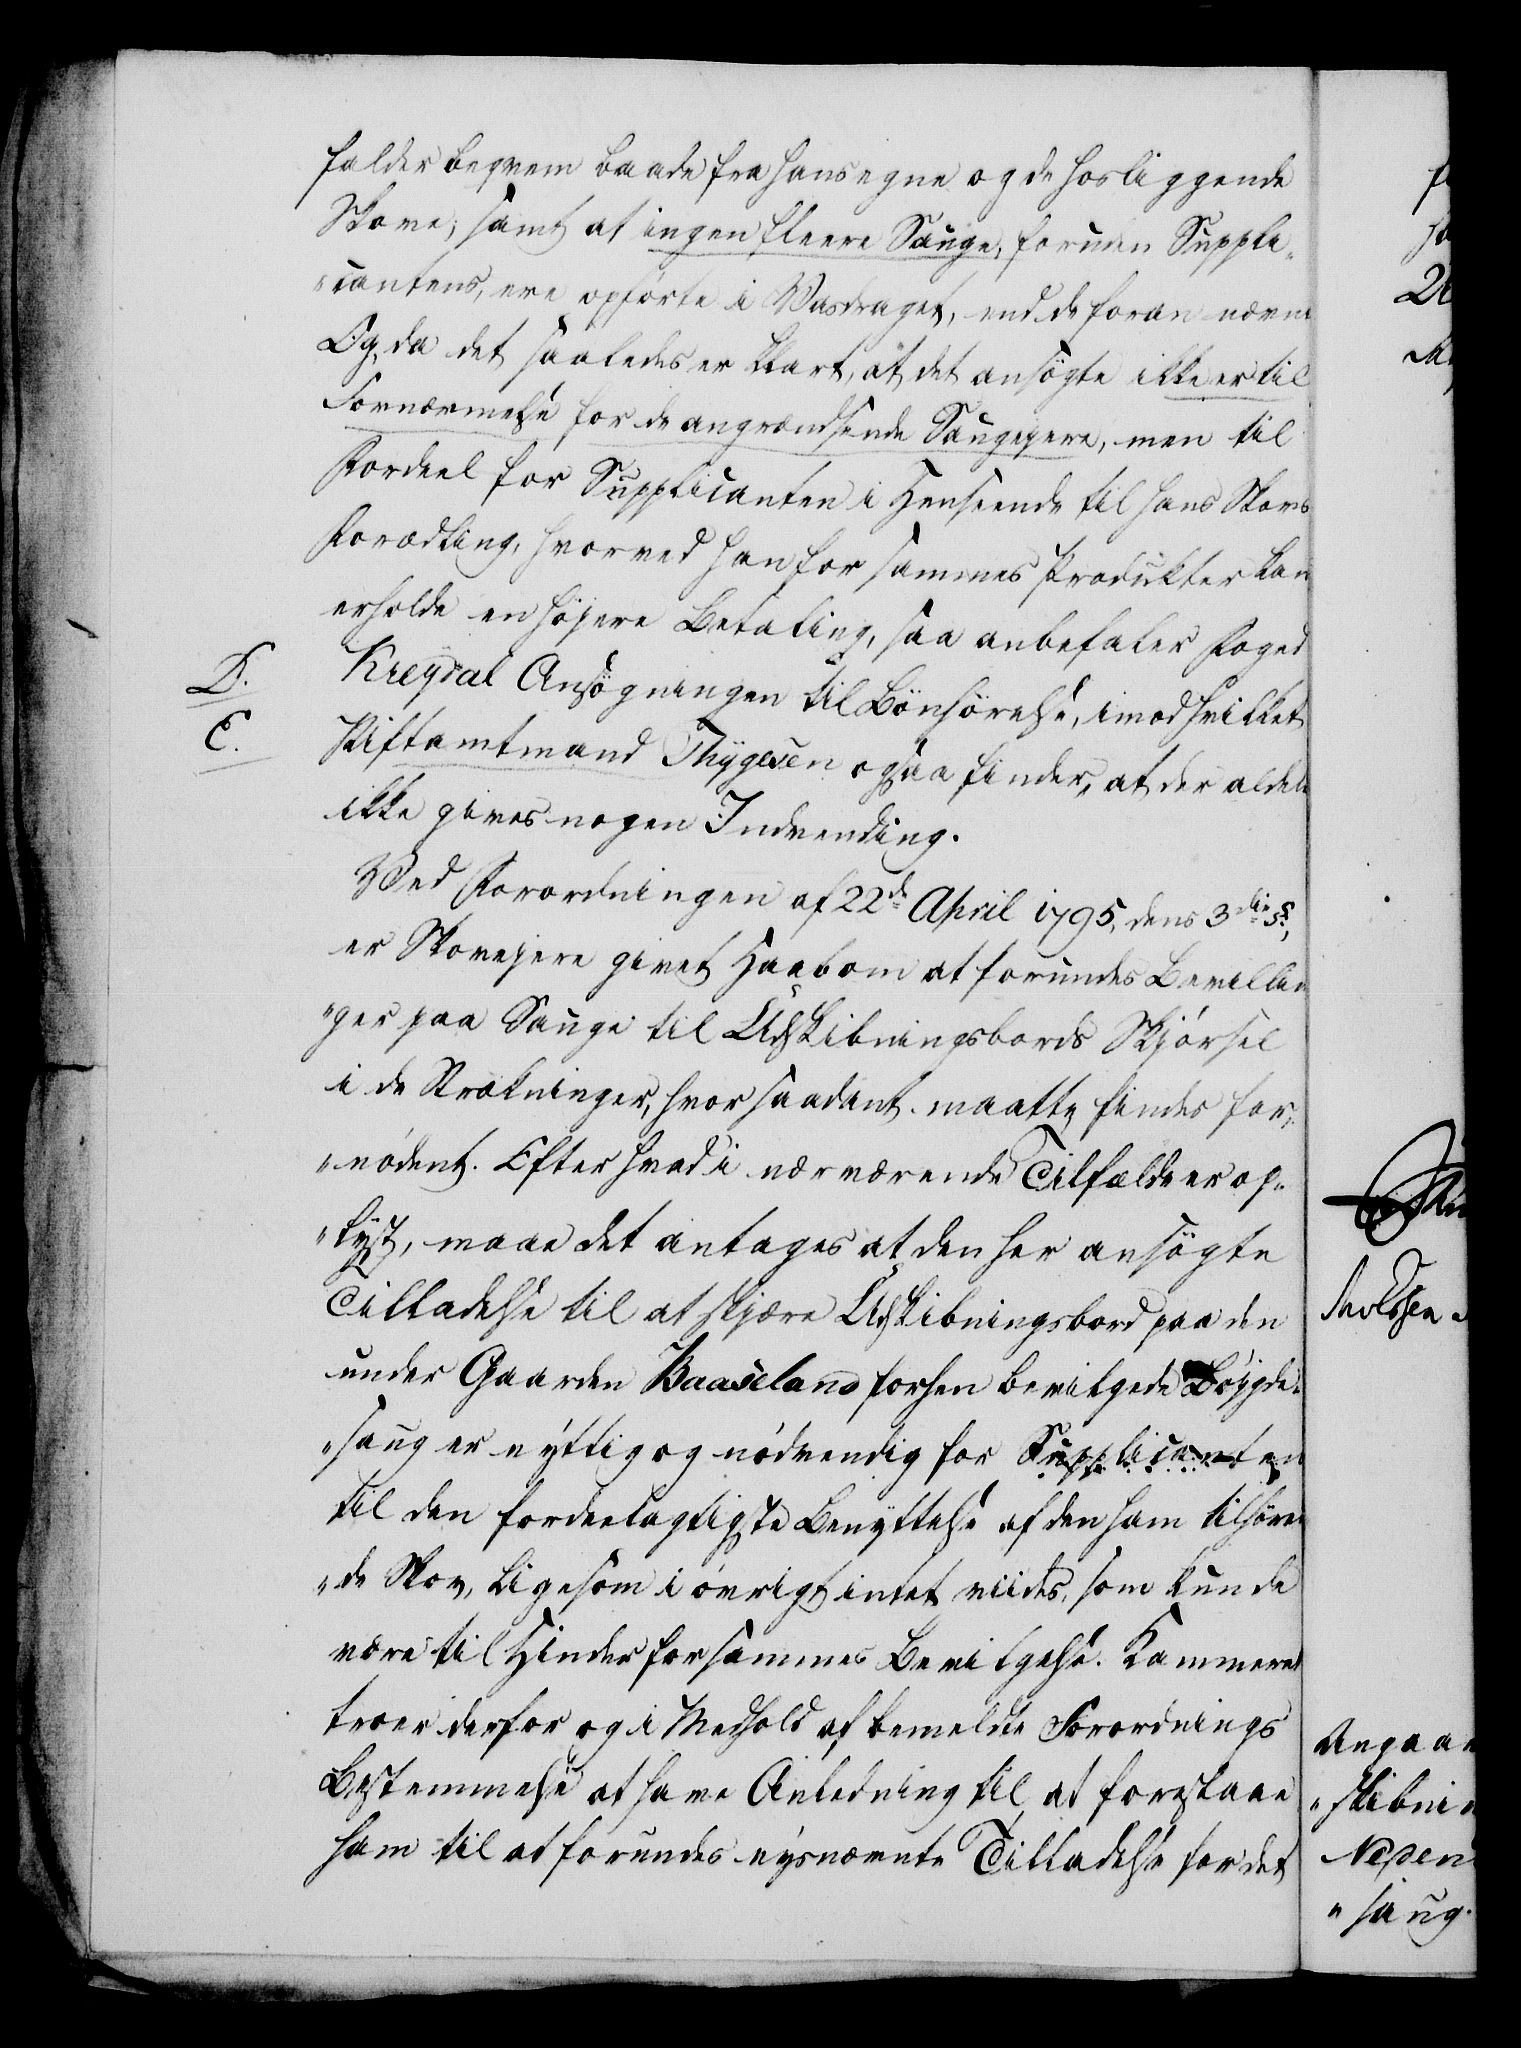 falder beqvem baade fra hans egne og de hosliggende
Skove; samt at ingen fleere Sauge, foruden Suppli„
„cantens, ere opførte i Vasdraget, end de foran nævn
Og, da det saaledes er klart, at det ansøgte ikke er til
Fornærmelse for de angrændsende Saugejere, men til
Fordeel for Supplicanten i Henseende til hans Skovs
Forædling, hvorved han for sammes Produkter kan
erholde en høyere Betaling, saa anbefaler Foged
D. Kreydal Ansøgningen til Bønhørelse, imod hvilket
E. Stiftamtmand Thygesen ogsaa finder, at der aldele
ikke gives nogen Indvending.
Ved Forordningen af 22de April 1795, dens 3die §,
er Skovejere givet Haab om at forundes Bevillin
„ger paa Sauge til Udskibningsbords Skjørsel
i de Strækninger, hvor saadant maatte findes for„
„nødent. Efter hvad i nærværende Tilfælde er op„
„lyst, maae det antages at den her ansøgte
Tilladelse til at skjære Udskibningsbord paa den
under Gaarden Baaseland forhen bevilgede Bøygde„
„saug er nyttig og nødvendig for Supplicanten
til den fordeelagtigste Benyttelse af den ham tilhøren
„de Skov, ligesom i øvrigt intet viides, som kunde
være til Hinder for sammes Bevilgelse. Kammeret
troer derfor og i Medhold af bemeldte Forordnings
Bestemmelse at have Anledning til at foreslaae
ham til at forundes nysnævnte Tilladelse for det
Angaae
„skibnin
Neden
„saug.